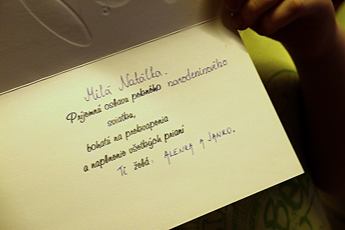 Milá Natálka.
Príjemná oslava pekného narodeninového
sviatku,
bohatá na prekvapenia
a naplnenie všetkých prianí
Ti želá: ALENKA A JANKO.